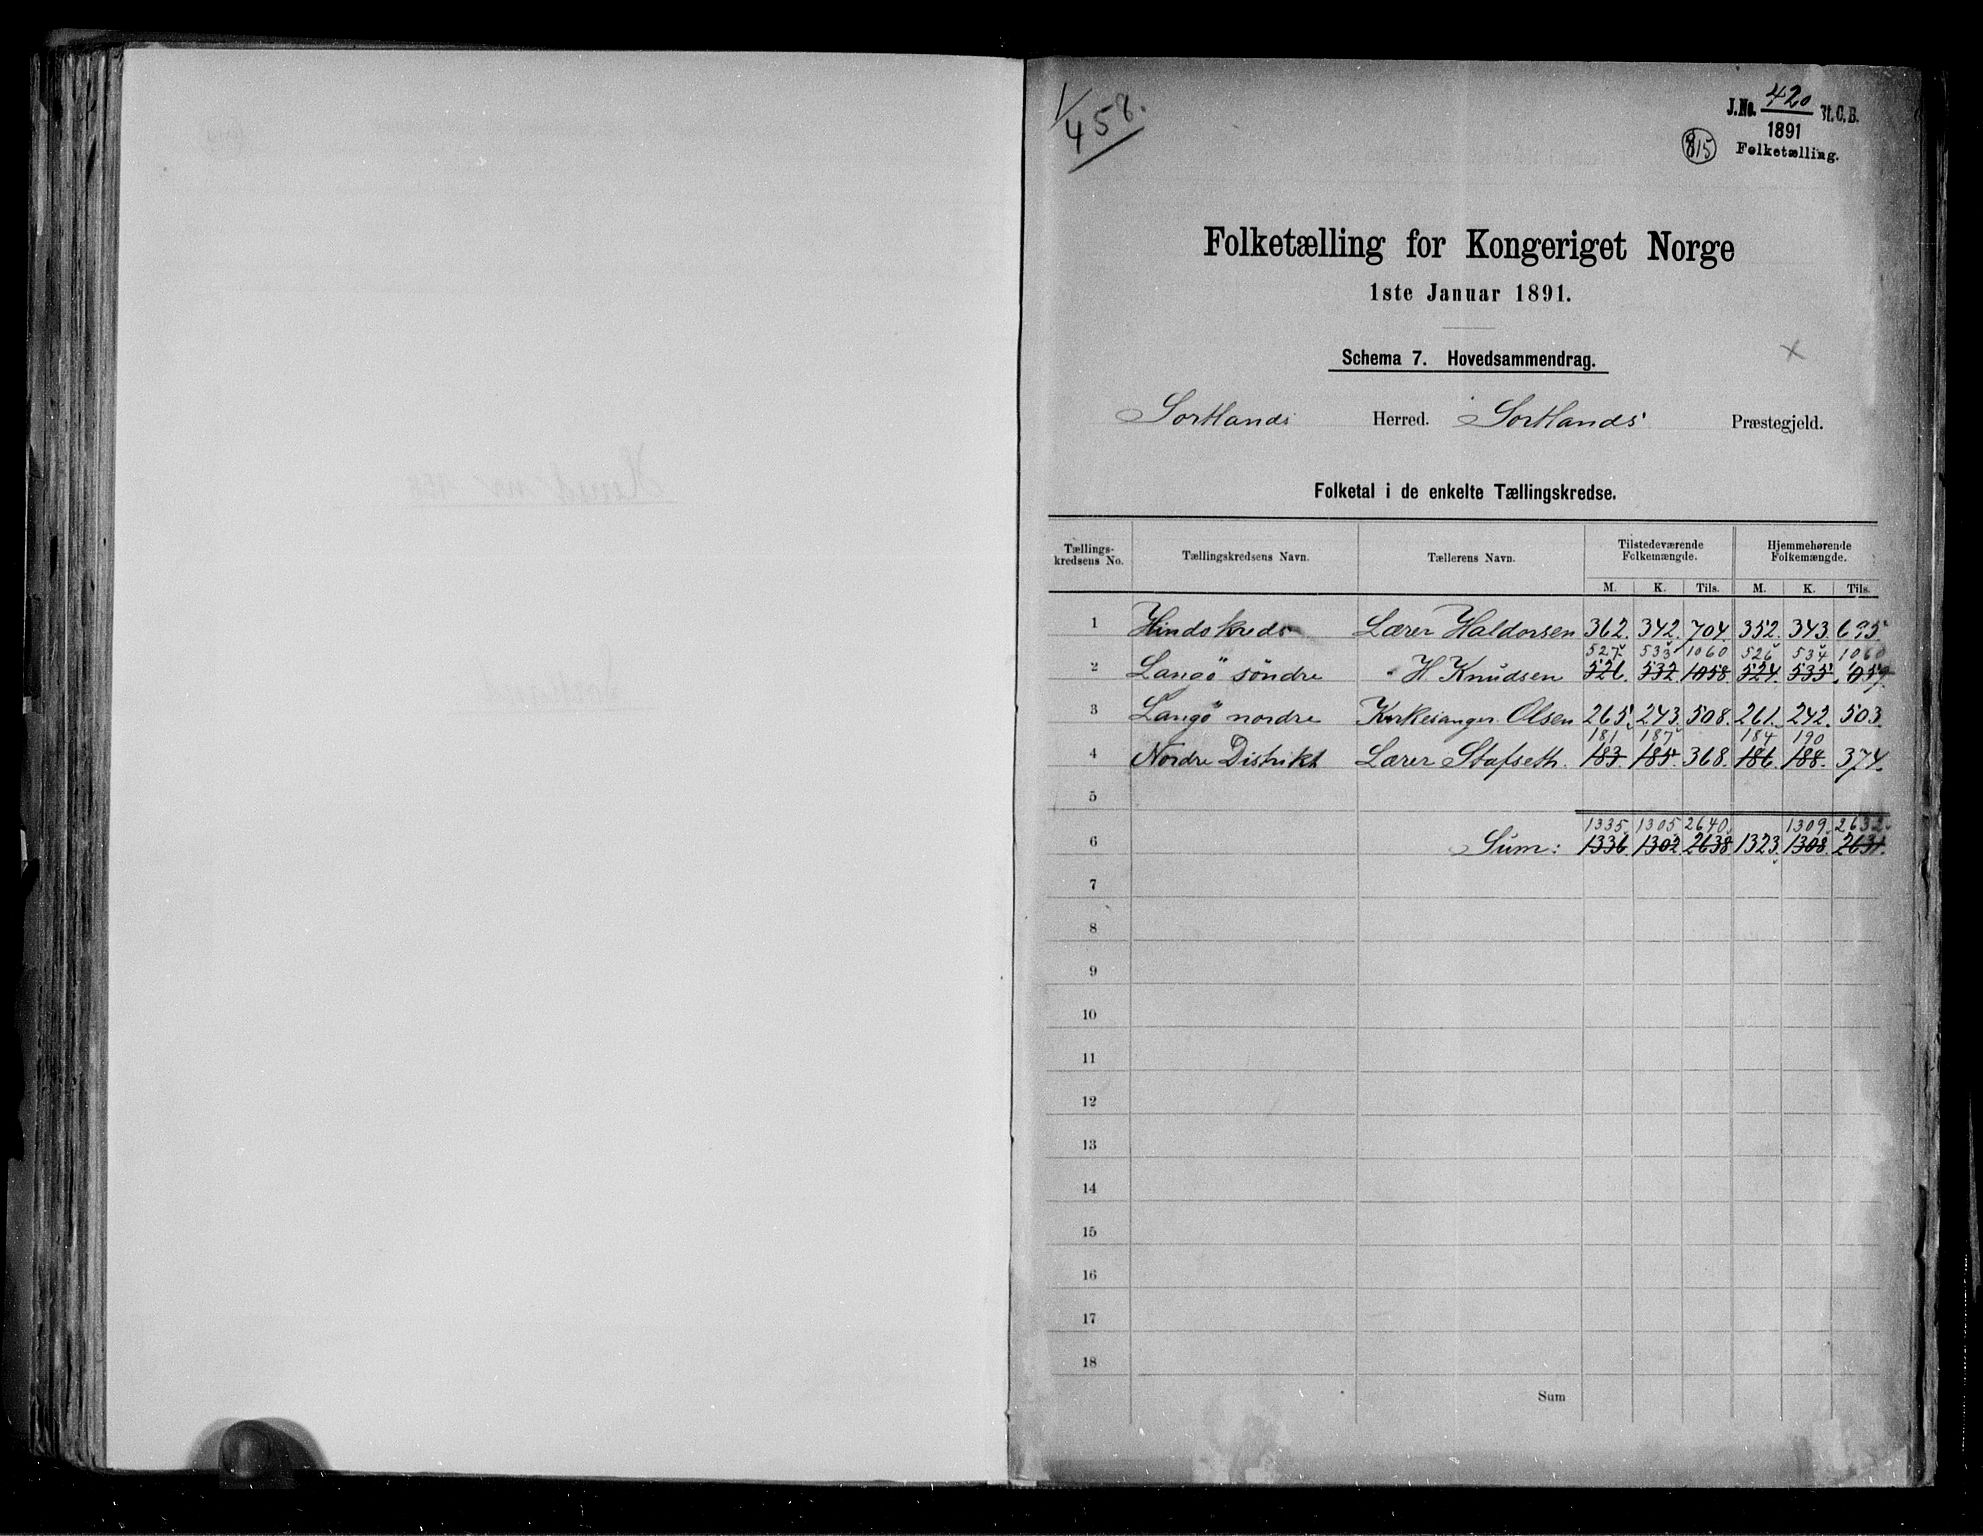 1/458.
J.No. 420 St.C.B.
1891
Folketælling.
815
Folketælling for Kongeriget Norge
1ste Januar 1891.
Schema 7. Hovedsammendrag.
Sortlands Herred. Sortlands Præstegjeld.
Folketal i de enkelte Tællingskredse.
Tællings-kredsens No. Tællingskredsens Navn. Tællerens Navn. Tilstedeværende Folkemængde. Hjemmehørende Folkemængde.
M. K. Tils. M. K. Tils.
1 Hindøkreds Lærer Haldorsen 362. 342. 704. 352. 343. 695.
527 533 1060 526 534 1060
2 Langö söndre " H Knudsen 526. 532. 1058. 524. 535. 1059.
3 Langö nordre Kirkesanger Olsen 265. 243. 508. 261. 242. 503.
181 187 184 190
4 Nordre Distrikt Lærer Stafseth. 183. 185. 368. 186. 188. 374.
5
1335. 1305 2640. 1309. 2632.
6 Sum: 1336. 1302 2638 1323. 1308. 2631.
7
8
9
10
11
12
13
14
15
16
17
18
Sum